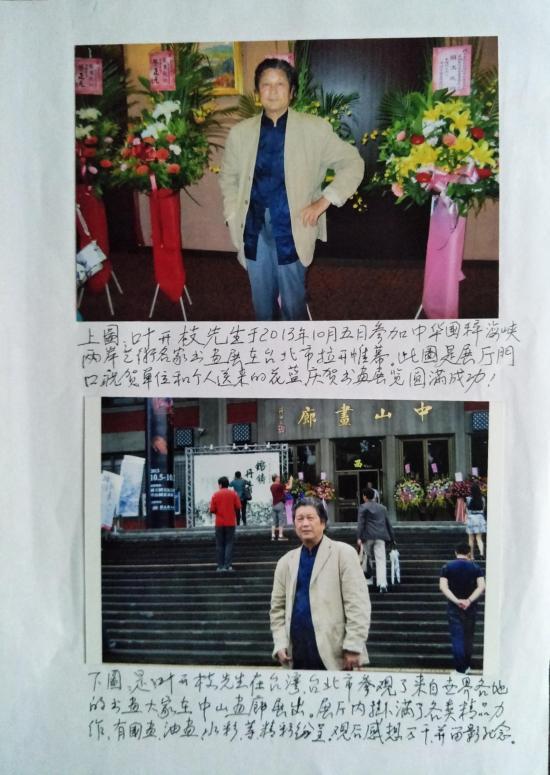 上圖: 叶开枝先生于2013年10月五日参加中华國粹海峡
两岸艺術名家书画展在台北市拉开帷幕, 此圖是展厅門
口祝贺單位和个人送来的花蓝庆贺书画展览圆滿成功!
中山畫廊
西
2013
10.5-10.
下圖: 是叶开枝先生在台湾, 台北市参观了来自世界各地
的书画大家在中山画廊展出。展厅内掛满了各类精品力
作, 有國画, 油画, 水彩, 等精彩纷呈, 观后感想万千, 并留影纪念。